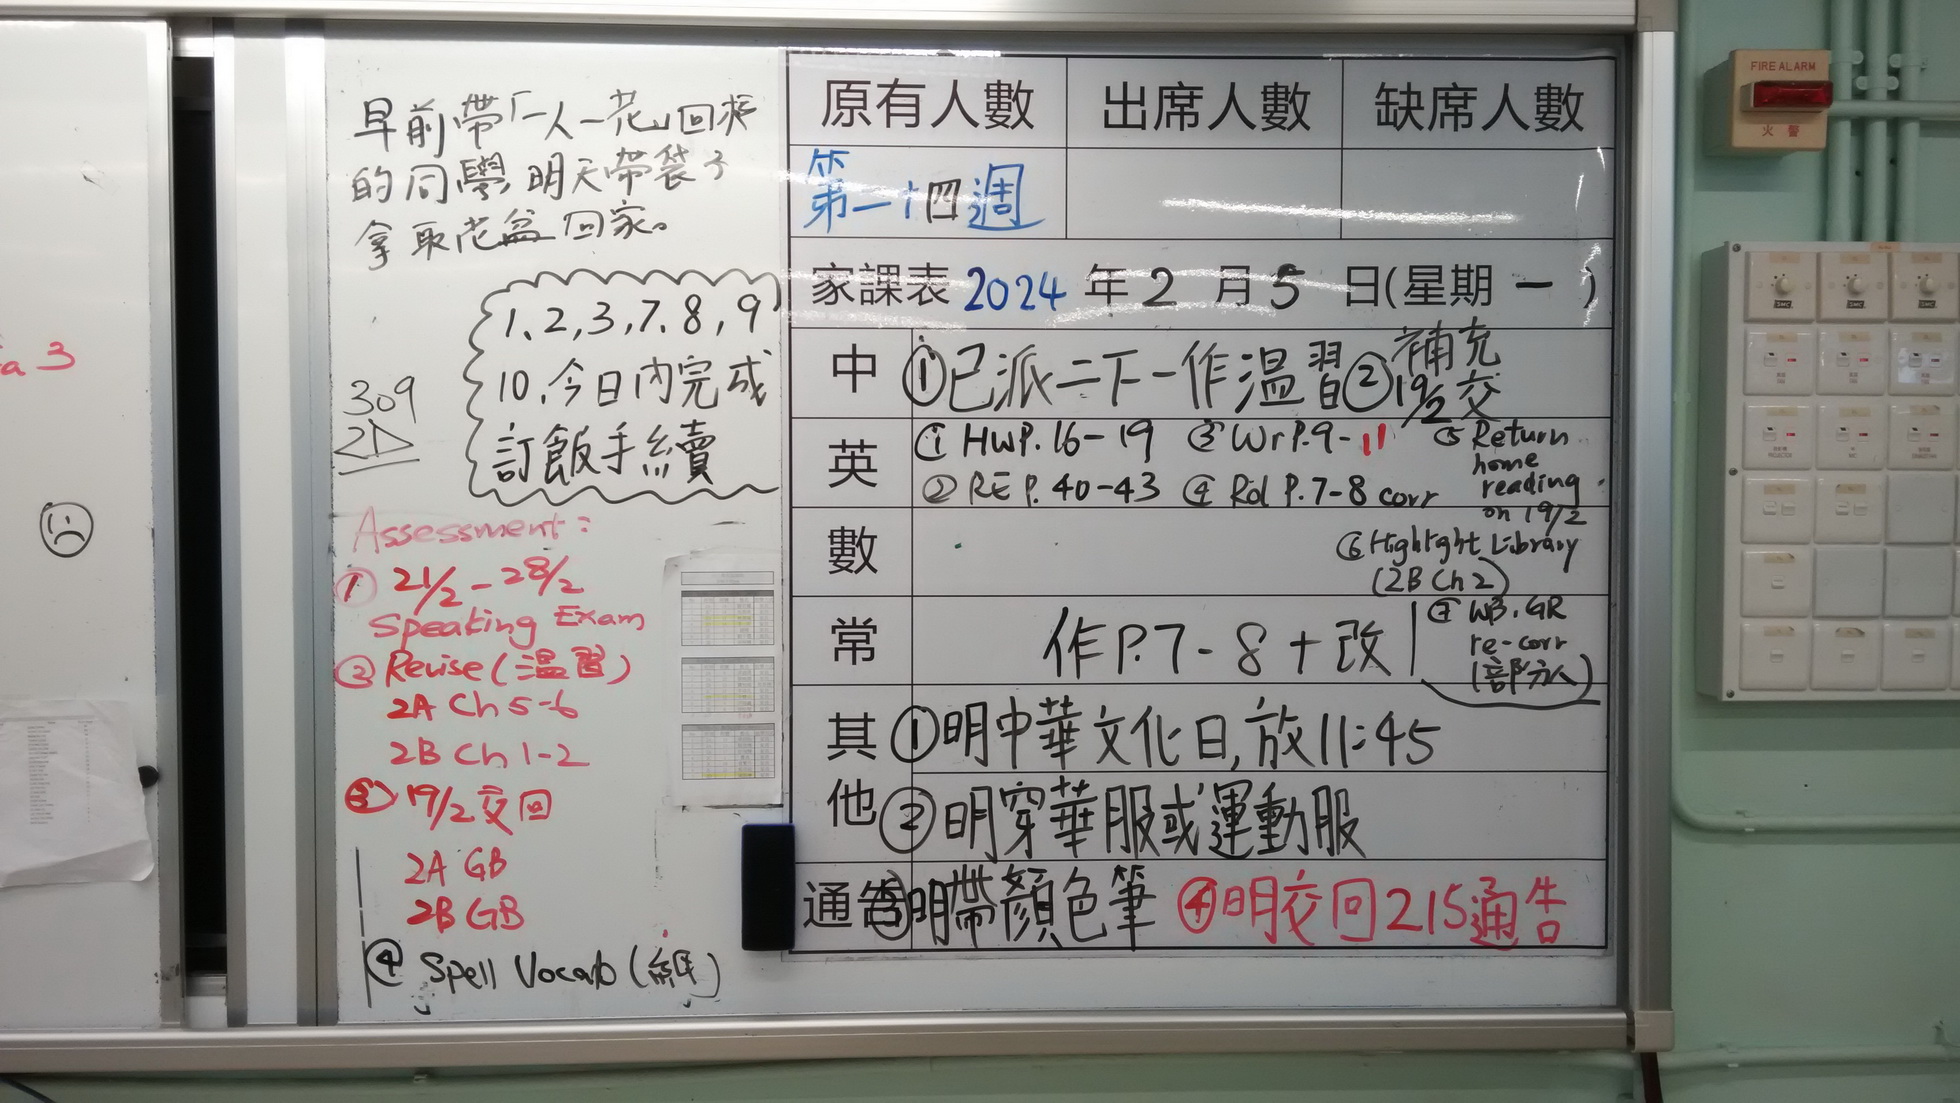 早前帶「一人一花」回校
的同學,明天帶袋子
拿取花盆回家。
1、2,3,7、8,9
10、今日內完成
訂飯手續
309
2D
a 3
Assessment:
① 21/2 - 28/2
Speaking Exam
② Revise (溫習)
2A Ch 5-6
2B Ch 1-2
③ 19/2 交回
2A GB
2B GB
④ Spell Vocab (網)
原有人數 出席人數 缺席人數
第二十四週
家課表 2024 年 2 月 5 日(星期 一 )
中 ①已派二下一作溫習 ②補充
19/2 交
英 ① HW P. 16-19 ③ Wr P. 9-11 ⑤ Return
home
reading
on 19/2
② RE P. 40-43 ④ Rd P. 7-8 corr
數 ⑥ Highlight Library
(2B Ch 2)
常 作P. 7-8 + 改 ⑦ WB. GR
re-corr
(部分人)
其他 ①明中華文化日,放11:45
②明穿華服或運動服
通告 ③明帶顏色筆 ④明交回215通告
FIRE ALARM
火警